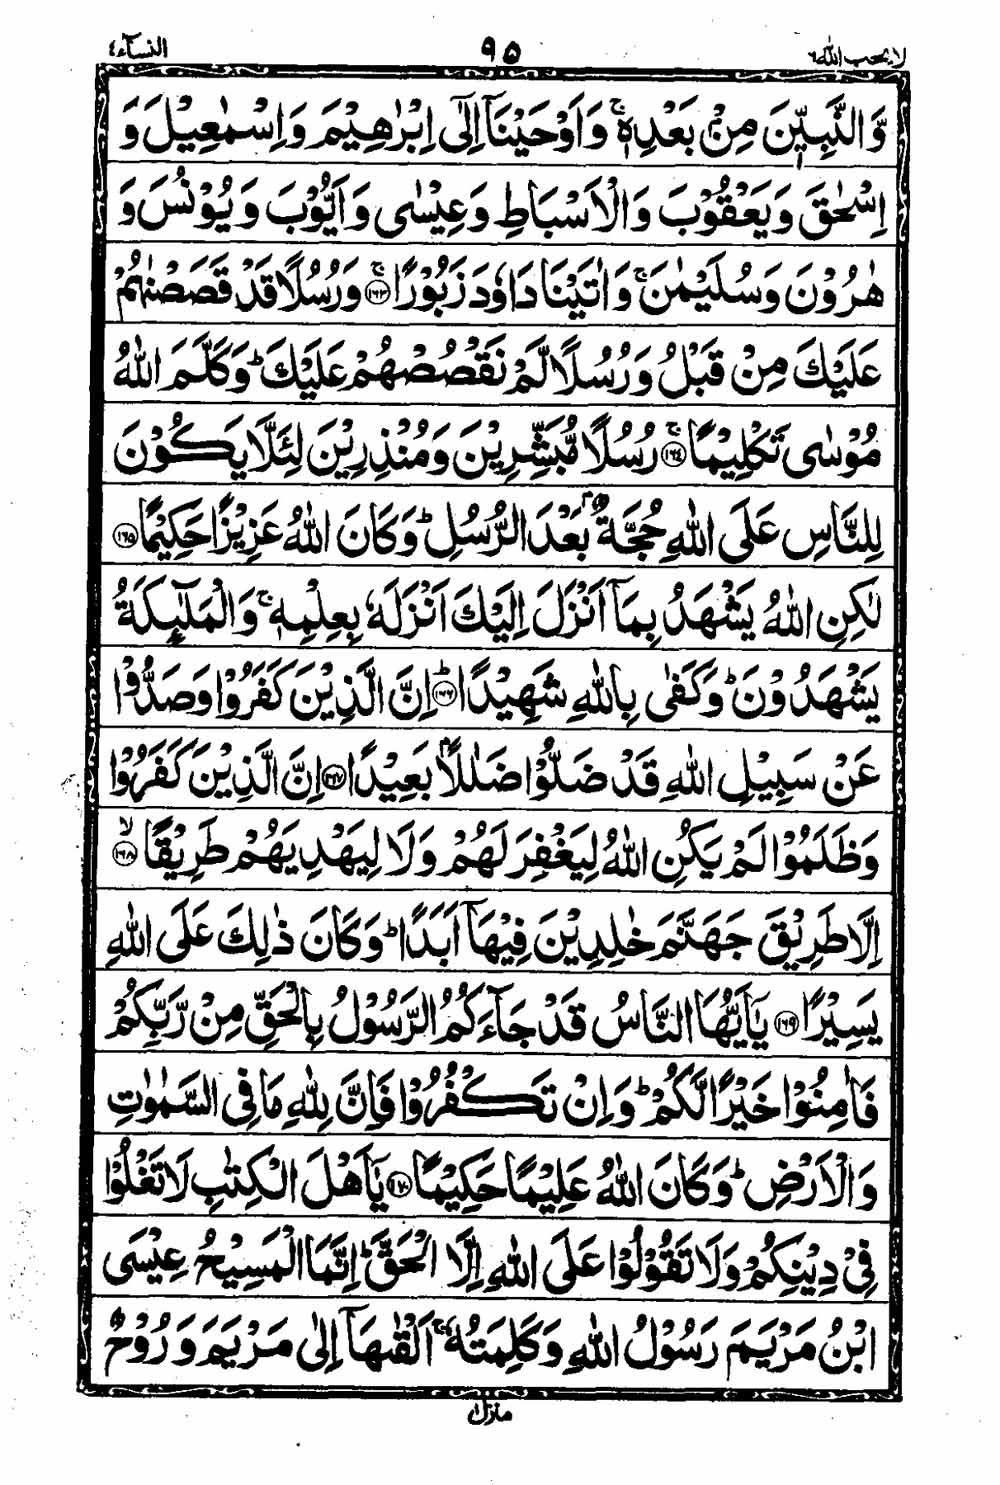 لا يحب الله ٦ ٩٥ النسآء ٤
وَّالنَّبِيّٖنَ مِنْۢ بَعْدِهٖ ۚ وَاَوْحَيْنَاۤ اِلٰۤى اِبْرٰهِيْمَ وَاِسْمٰعِيْلَ وَ
اِسْحٰقَ وَيَعْقُوْبَ وَالْاَسْبَاطِ وَعِيْسٰى وَاَيُّوْبَ وَيُوْنُسَ وَ
هٰرُوْنَ وَسُلَيْمٰنَ ۚ وَاٰتَيْنَا دَاوٗدَ زَبُوْرًا ۚ ﴿۱۶۳﴾ وَرُسُلًا قَدْ قَصَصْنٰهُمْ
عَلَيْكَ مِنْ قَبْلُ وَرُسُلًا لَّمْ نَقْصُصْهُمْ عَلَيْكَ ؕ وَكَلَّمَ اللّٰهُ
مُوْسٰى تَكْلِيْمًا ۚ ﴿۱۶۴﴾ رُسُلًا مُّبَشِّرِيْنَ وَمُنْذِرِيْنَ لِئَلَّا يَكُوْنَ
لِلنَّاسِ عَلَى اللّٰهِ حُجَّةٌۢ بَعْدَ الرُّسُلِ ؕ وَكَانَ اللّٰهُ عَزِيْزًا حَكِيْمًا ﴿۱۶۵﴾
لٰكِنِ اللّٰهُ يَشْهَدُ بِمَاۤ اَنْزَلَ اِلَيْكَ اَنْزَلَهٗ بِعِلْمِهٖ ۚ وَالْمَلٰٓئِكَةُ
يَشْهَدُوْنَ ؕ وَكَفٰى بِاللّٰهِ شَهِيْدًا ؕ ﴿۱۶۶﴾ اِنَّ الَّذِيْنَ كَفَرُوْا وَصَدُّوْا
عَنْ سَبِيْلِ اللّٰهِ قَدْ ضَلُّوْا ضَلٰلًاۢ بَعِيْدًا ﴿۱۶۷﴾ اِنَّ الَّذِيْنَ كَفَرُوْا
وَظَلَمُوْا لَمْ يَكُنِ اللّٰهُ لِيَغْفِرَ لَهُمْ وَلَا لِيَهْدِيَهُمْ طَرِيْقًا ۙ ﴿۱۶۸﴾
اِلَّا طَرِيْقَ جَهَنَّمَ خٰلِدِيْنَ فِيْهَاۤ اَبَدًا ؕ وَكَانَ ذٰلِكَ عَلَى اللّٰهِ
يَسِيْرًا ﴿۱۶۹﴾ يٰۤاَيُّهَا النَّاسُ قَدْ جَآءَكُمُ الرَّسُوْلُ بِالْحَقِّ مِنْ رَّبِّكُمْ
فَاٰمِنُوْا خَيْرًا لَّكُمْ ؕ وَاِنْ تَكْفُرُوْا فَاِنَّ لِلّٰهِ مَا فِى السَّمٰوٰتِ
وَالْاَرْضِ ؕ وَكَانَ اللّٰهُ عَلِيْمًا حَكِيْمًا ﴿۱۷۰﴾ يٰۤاَهْلَ الْكِتٰبِ لَا تَغْلُوْا
فِىْ دِيْنِكُمْ وَلَا تَقُوْلُوْا عَلَى اللّٰهِ اِلَّا الْحَقَّ ؕ اِنَّمَا الْمَسِيْحُ عِيْسَى
ابْنُ مَرْيَمَ رَسُوْلُ اللّٰهِ وَكَلِمَتُهٗ ۚ اَلْقٰىهَاۤ اِلٰى مَرْيَمَ وَرُوْحٌ
منزل ١